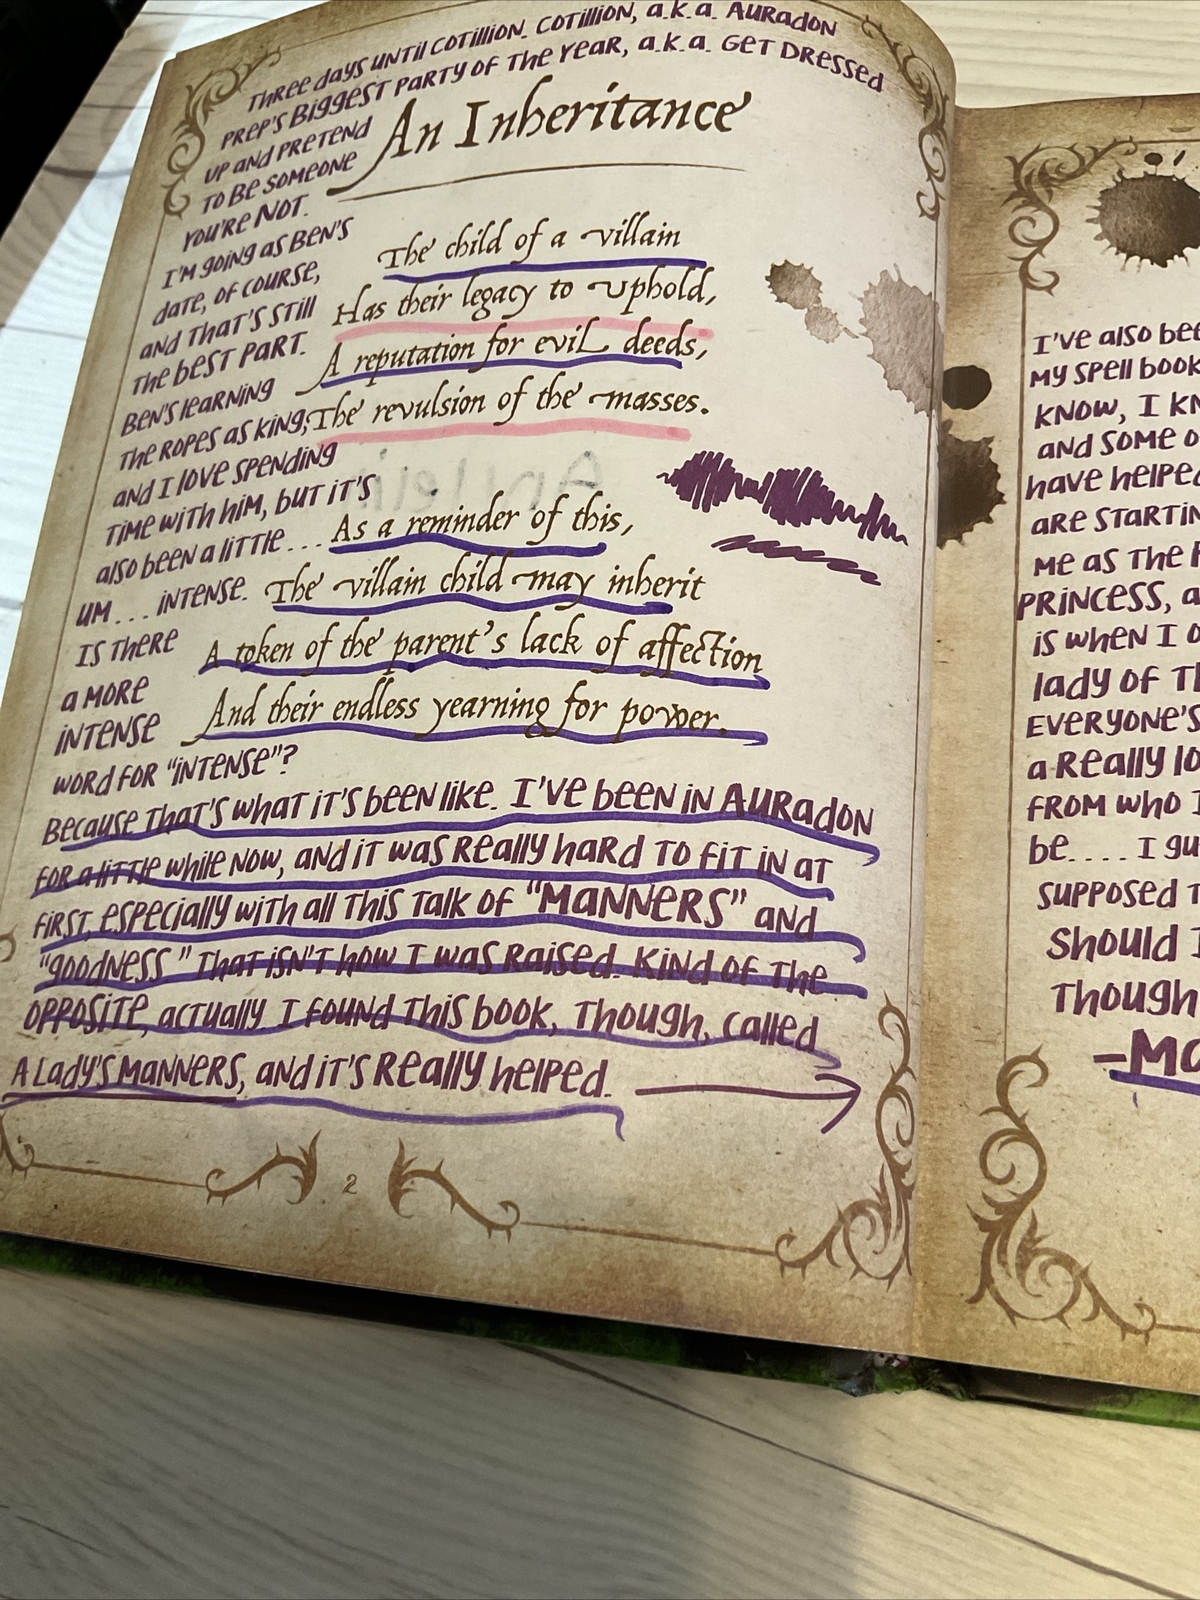 THREE days UNTil COTilliON. COTilliON, a.k.a. AURADON
PREP'S BIGGEST PARTY OF THE YEAR, a.k.a. GET DRESSED
UP AND PRETEND
TO BE SOMEONE
YOU'RE NOT.
An Inheritance
I'M going as BEN'S
daTE, OF COURSE,
AND THAT'S STill
THE bEST PART.
BEN'S lEARNING
THE ROPES as KING;
AND I lOVE SPENDING
TIME WITH HIM, bUT IT'S
also bEEN a liTTlE . . .
UM . . . iNTENSE.
IS THERE
a MORE
INTENSE
WORD FOR "iNTENSE"?
The child of a villain
Has their legacy to uphold,
A reputation for evil deeds,
The revulsion of the masses.
As a reminder of this,
The villain child may inherit
A token of the parent's lack of affection
And their endless yearning for power.
BECAUSE THAT'S WHAT IT'S bEEN liKE. I'VE bEEN iN AURADON
FOR a liTTlE whilE NOW, AND iT WAS REAlly haRD TO FiT iN AT
FIRST, ESPECIAlly WiTH all THIS Talk OF "MANNERS" AND
"gOODNESS" THAT iSN'T how I WAS RaiSEd. KiND OF THE
OPPOSITE, aCTUally. I FOUND THiS bOOK, THOUgh, CallEd
A LadY'S MANNERS, AND iT'S REAlly hElpEd.
2
I'VE also bEE
MY SpEll bOOK
KNOW, I KN
AND SOME O
HAVE HElPEd
ARE STARTiN
ME AS THE
PRINCESS, a
iS wHEN I O
lady OF T
EVERYONE'S
a REAlly lO
FROM WHO I
bE. . . . I gU
SUPPOSED T
SHOUld I
THOUgh
–MO